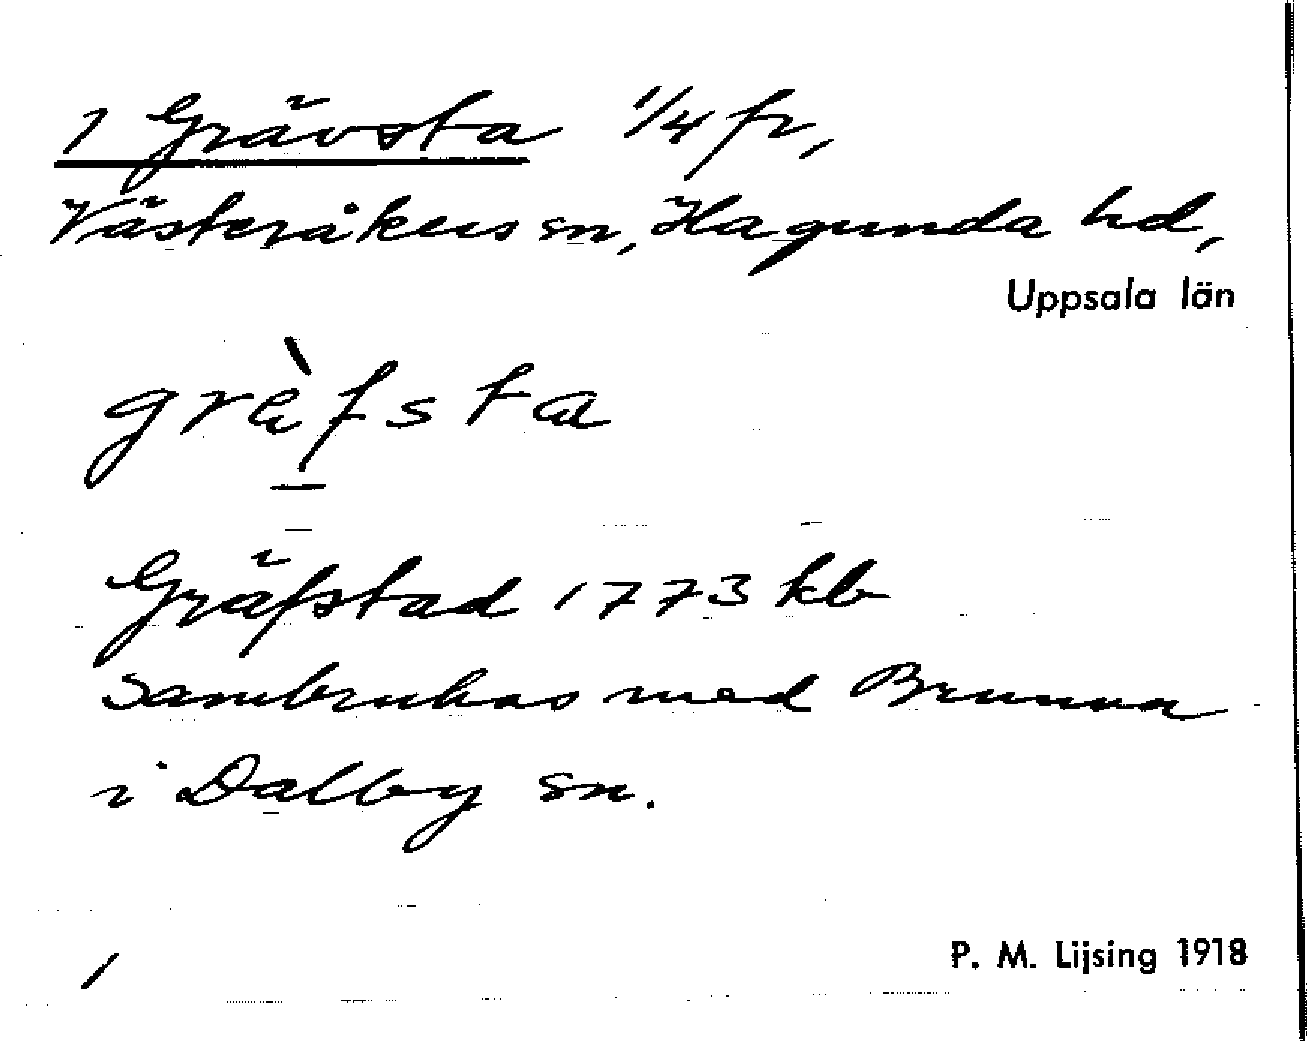 1 Grävsta 1/4 fr,
Västeråkers sn, Hagunda hd,
Uppsala län
grèfsta
Gräfstad 1773 kb
sambrukas med Brunna
i Dalby sn.
/
P. M. Lijsing 1918